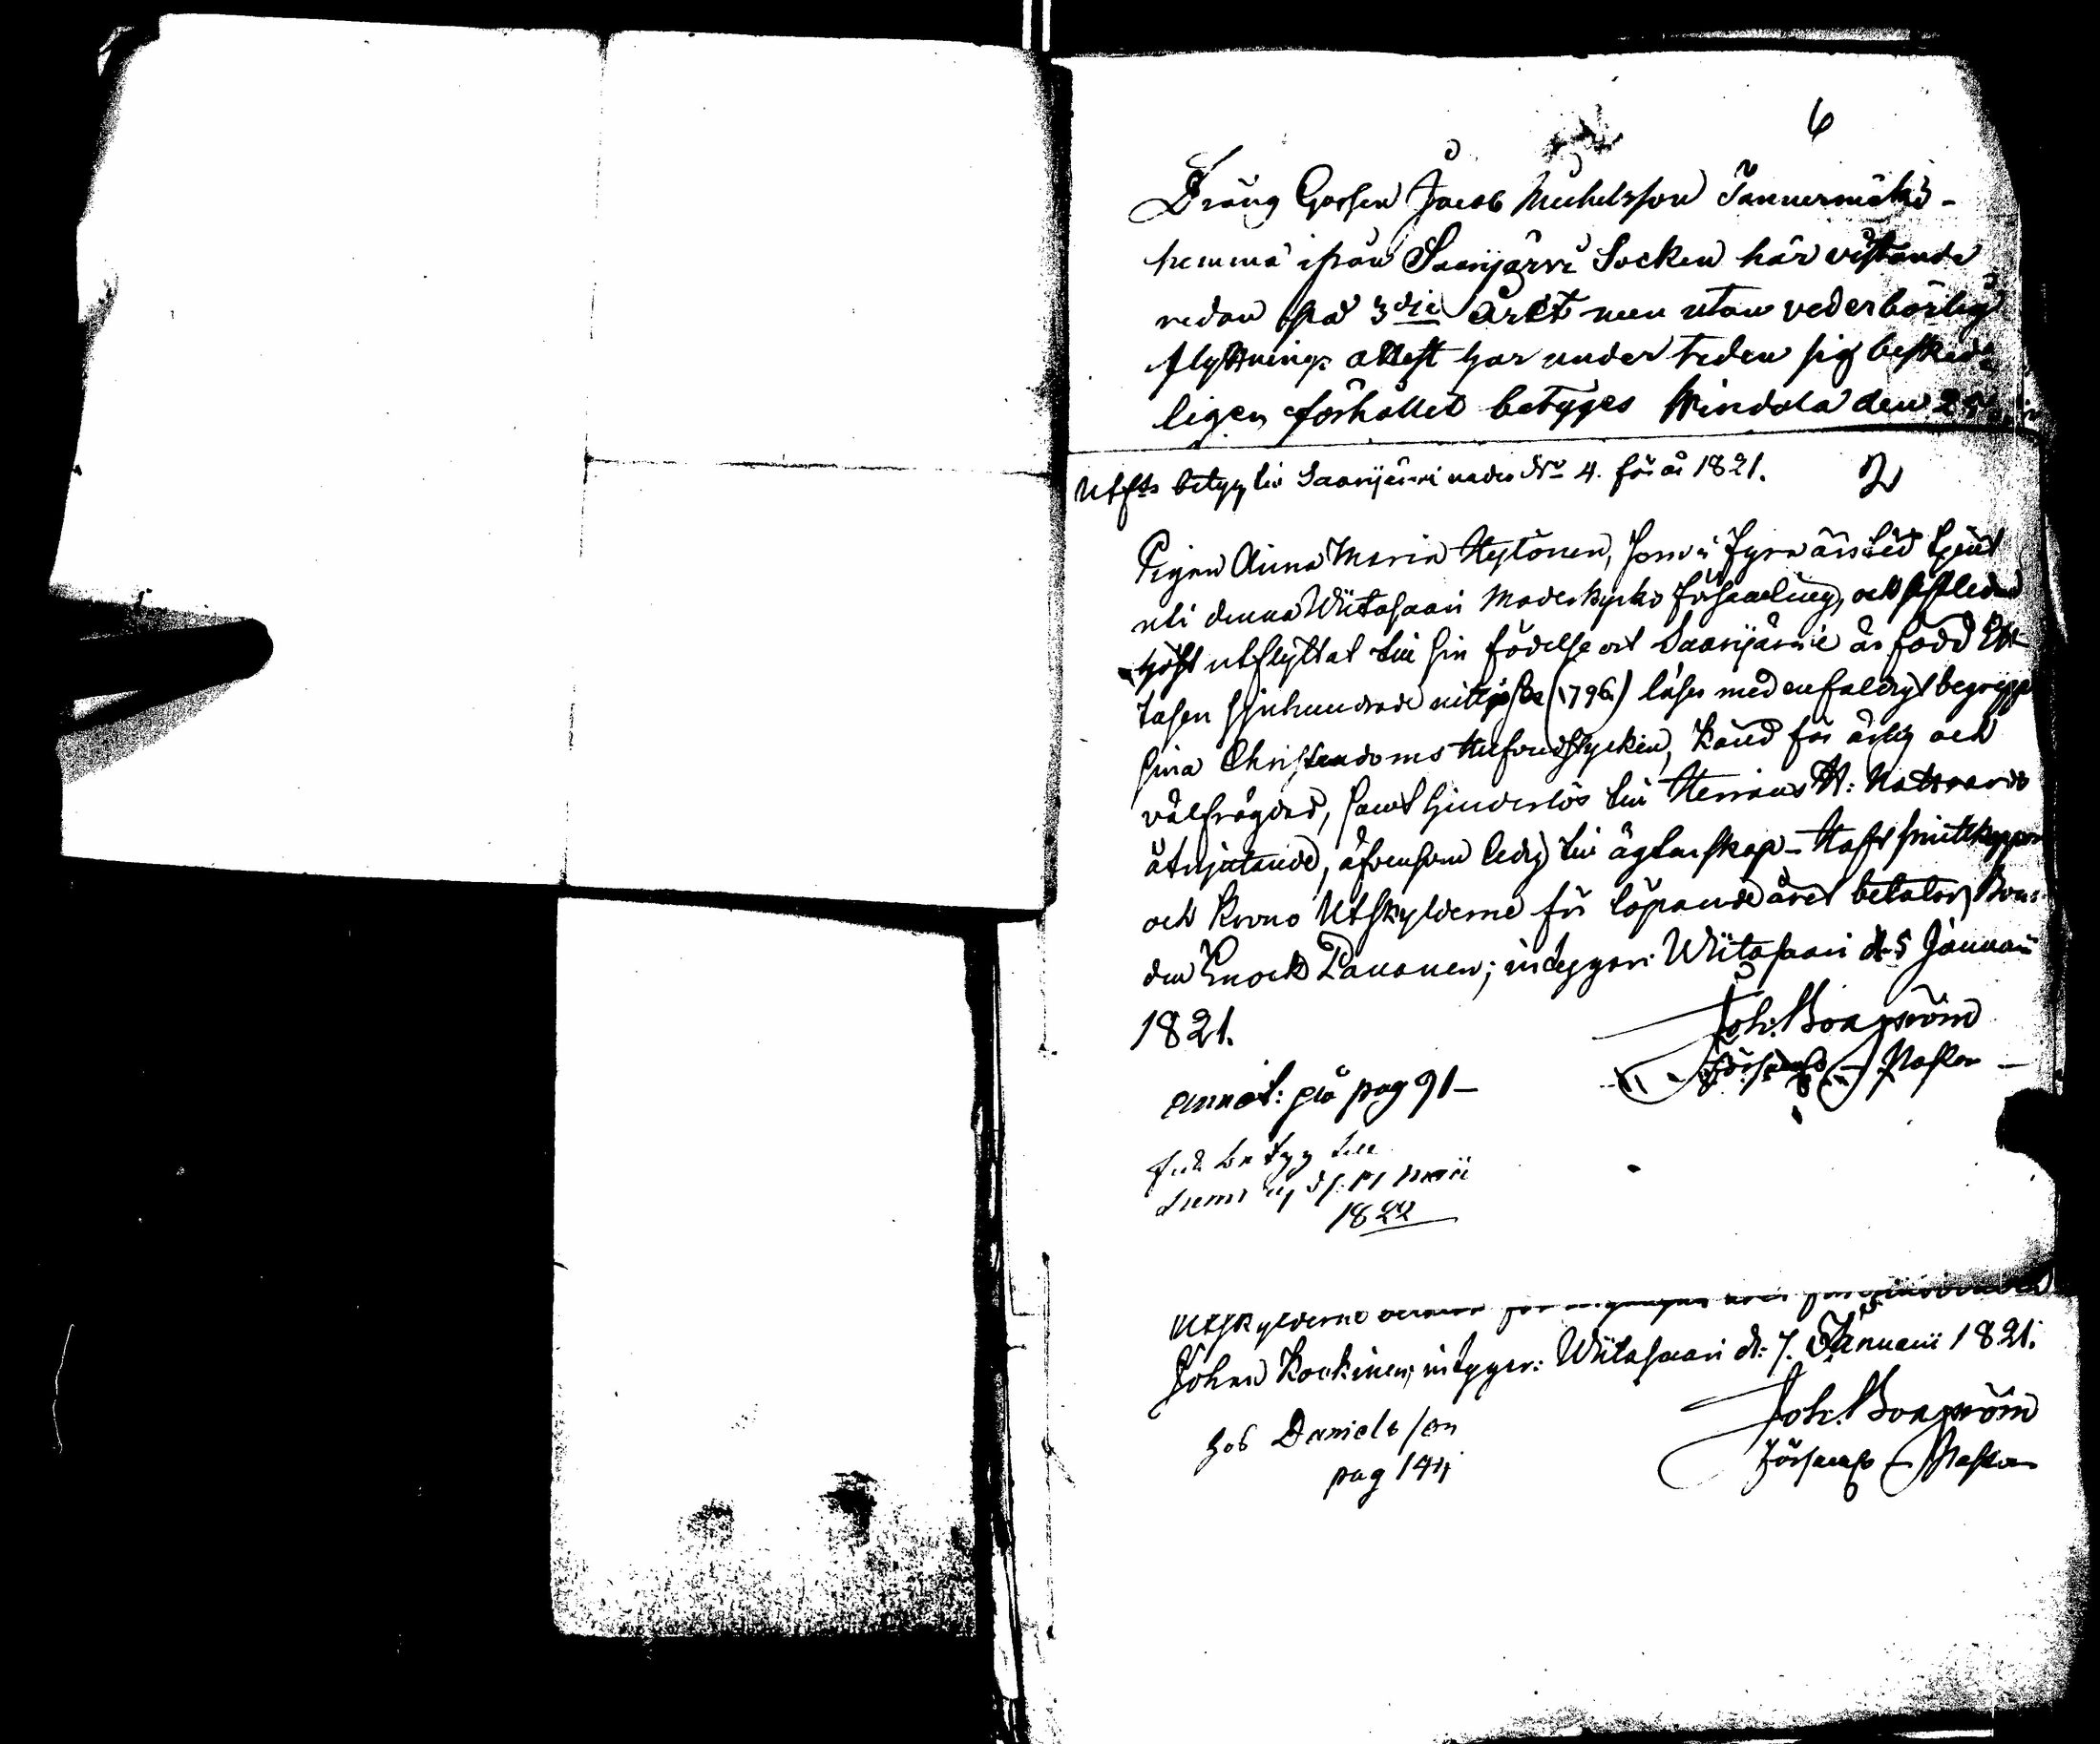 6
Dräng Gossen Jacob Michelsson Tannermäki
hemma ifrån Saarijärvi Socken här vistande
redan på 3die året men utan vederbörlig
flyttnings attest har under tiden sig beskede
ligen förhållit betyges Windala den
Utfls betyg til Saarijärvi under No 4. för år 1821.
2
Pigan Anna Maria Hytönen, som i fyra års tid tjent
uti denna Wiitasaari Moderkyrko Församling, och sistledne
höst utflyttat till sin födelse ort Saarijärvi är född Ett
tusen sjuhundrade nittijo sex (1796.) läser med enfaldigt begrepp
sina Christendoms Hufvudstycken, känd för ärlig och
välfrägdad, samt hinderlös till Herrans H: Nattvards
åtnjutande, äfvensom ledig till ägtenskap - Haft smittkoppor
och Krono Utskylderne för löpande året betalar Bon-
den Enock Pananen; intygar: Wiitasaari d: 5 Januarii
1821.
Joh: Bongström
Församls Pastor
annot: på pag 91 -
fick betyg till
1822
Utskylderne
Johan Kockinen, intygar: Wiitasaari d: 7. Januarii 1821.
Joh. Bongström
Församls Pastor
hos Danielsson
pag 144